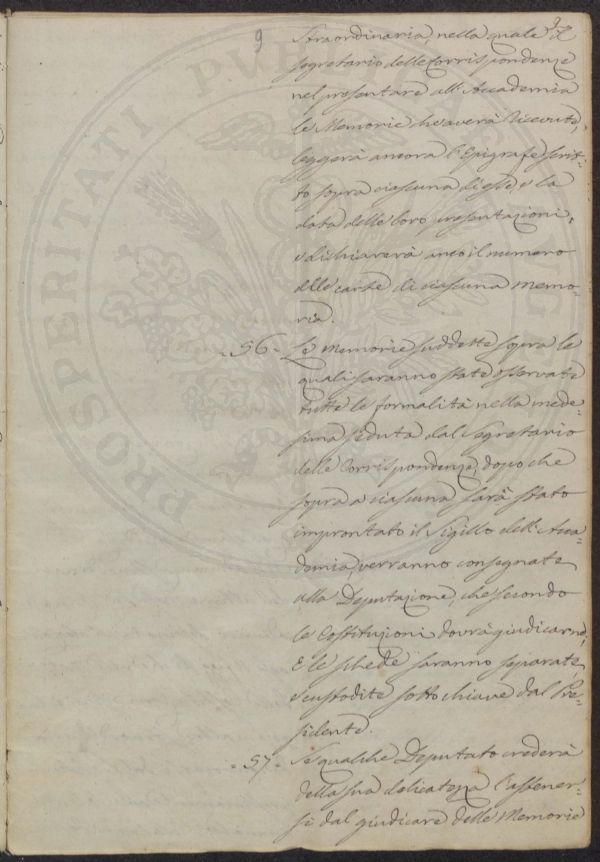 9
straordinaria, nella quale il
Segretario delle Corrispondenze
nel presentare all'Accademia
le Memorie che averà ricevute,
leggerà ancora l'Epigrafe scrit-
to sopra ciascuna di esse, e la
data delle loro presentazioni,
e dichiarerà anco il numero
delle carte di ciascuna memo-
ria.
- 56 - Le Memorie suddette sopra le
quali saranno state osservate
tutte le formalità nella mede-
sima seduta dal Segretario
delle Corrispondenze, dopo che
sopra a ciascuna sarà stato
improntato il Sigillo dell'Acca-
demia, verranno consegnate
alla Deputazione, che secondo
le Costituzioni dovrà giudicarne,
E le schede saranno separate,
e custodite sotto chiave dal Pre-
sidente.
- 57 - Se qualche Deputato crederà
della sua delicatezza l'astener-
si dal giudicare delle Memorie
PROSPERITATI PUBLICAE